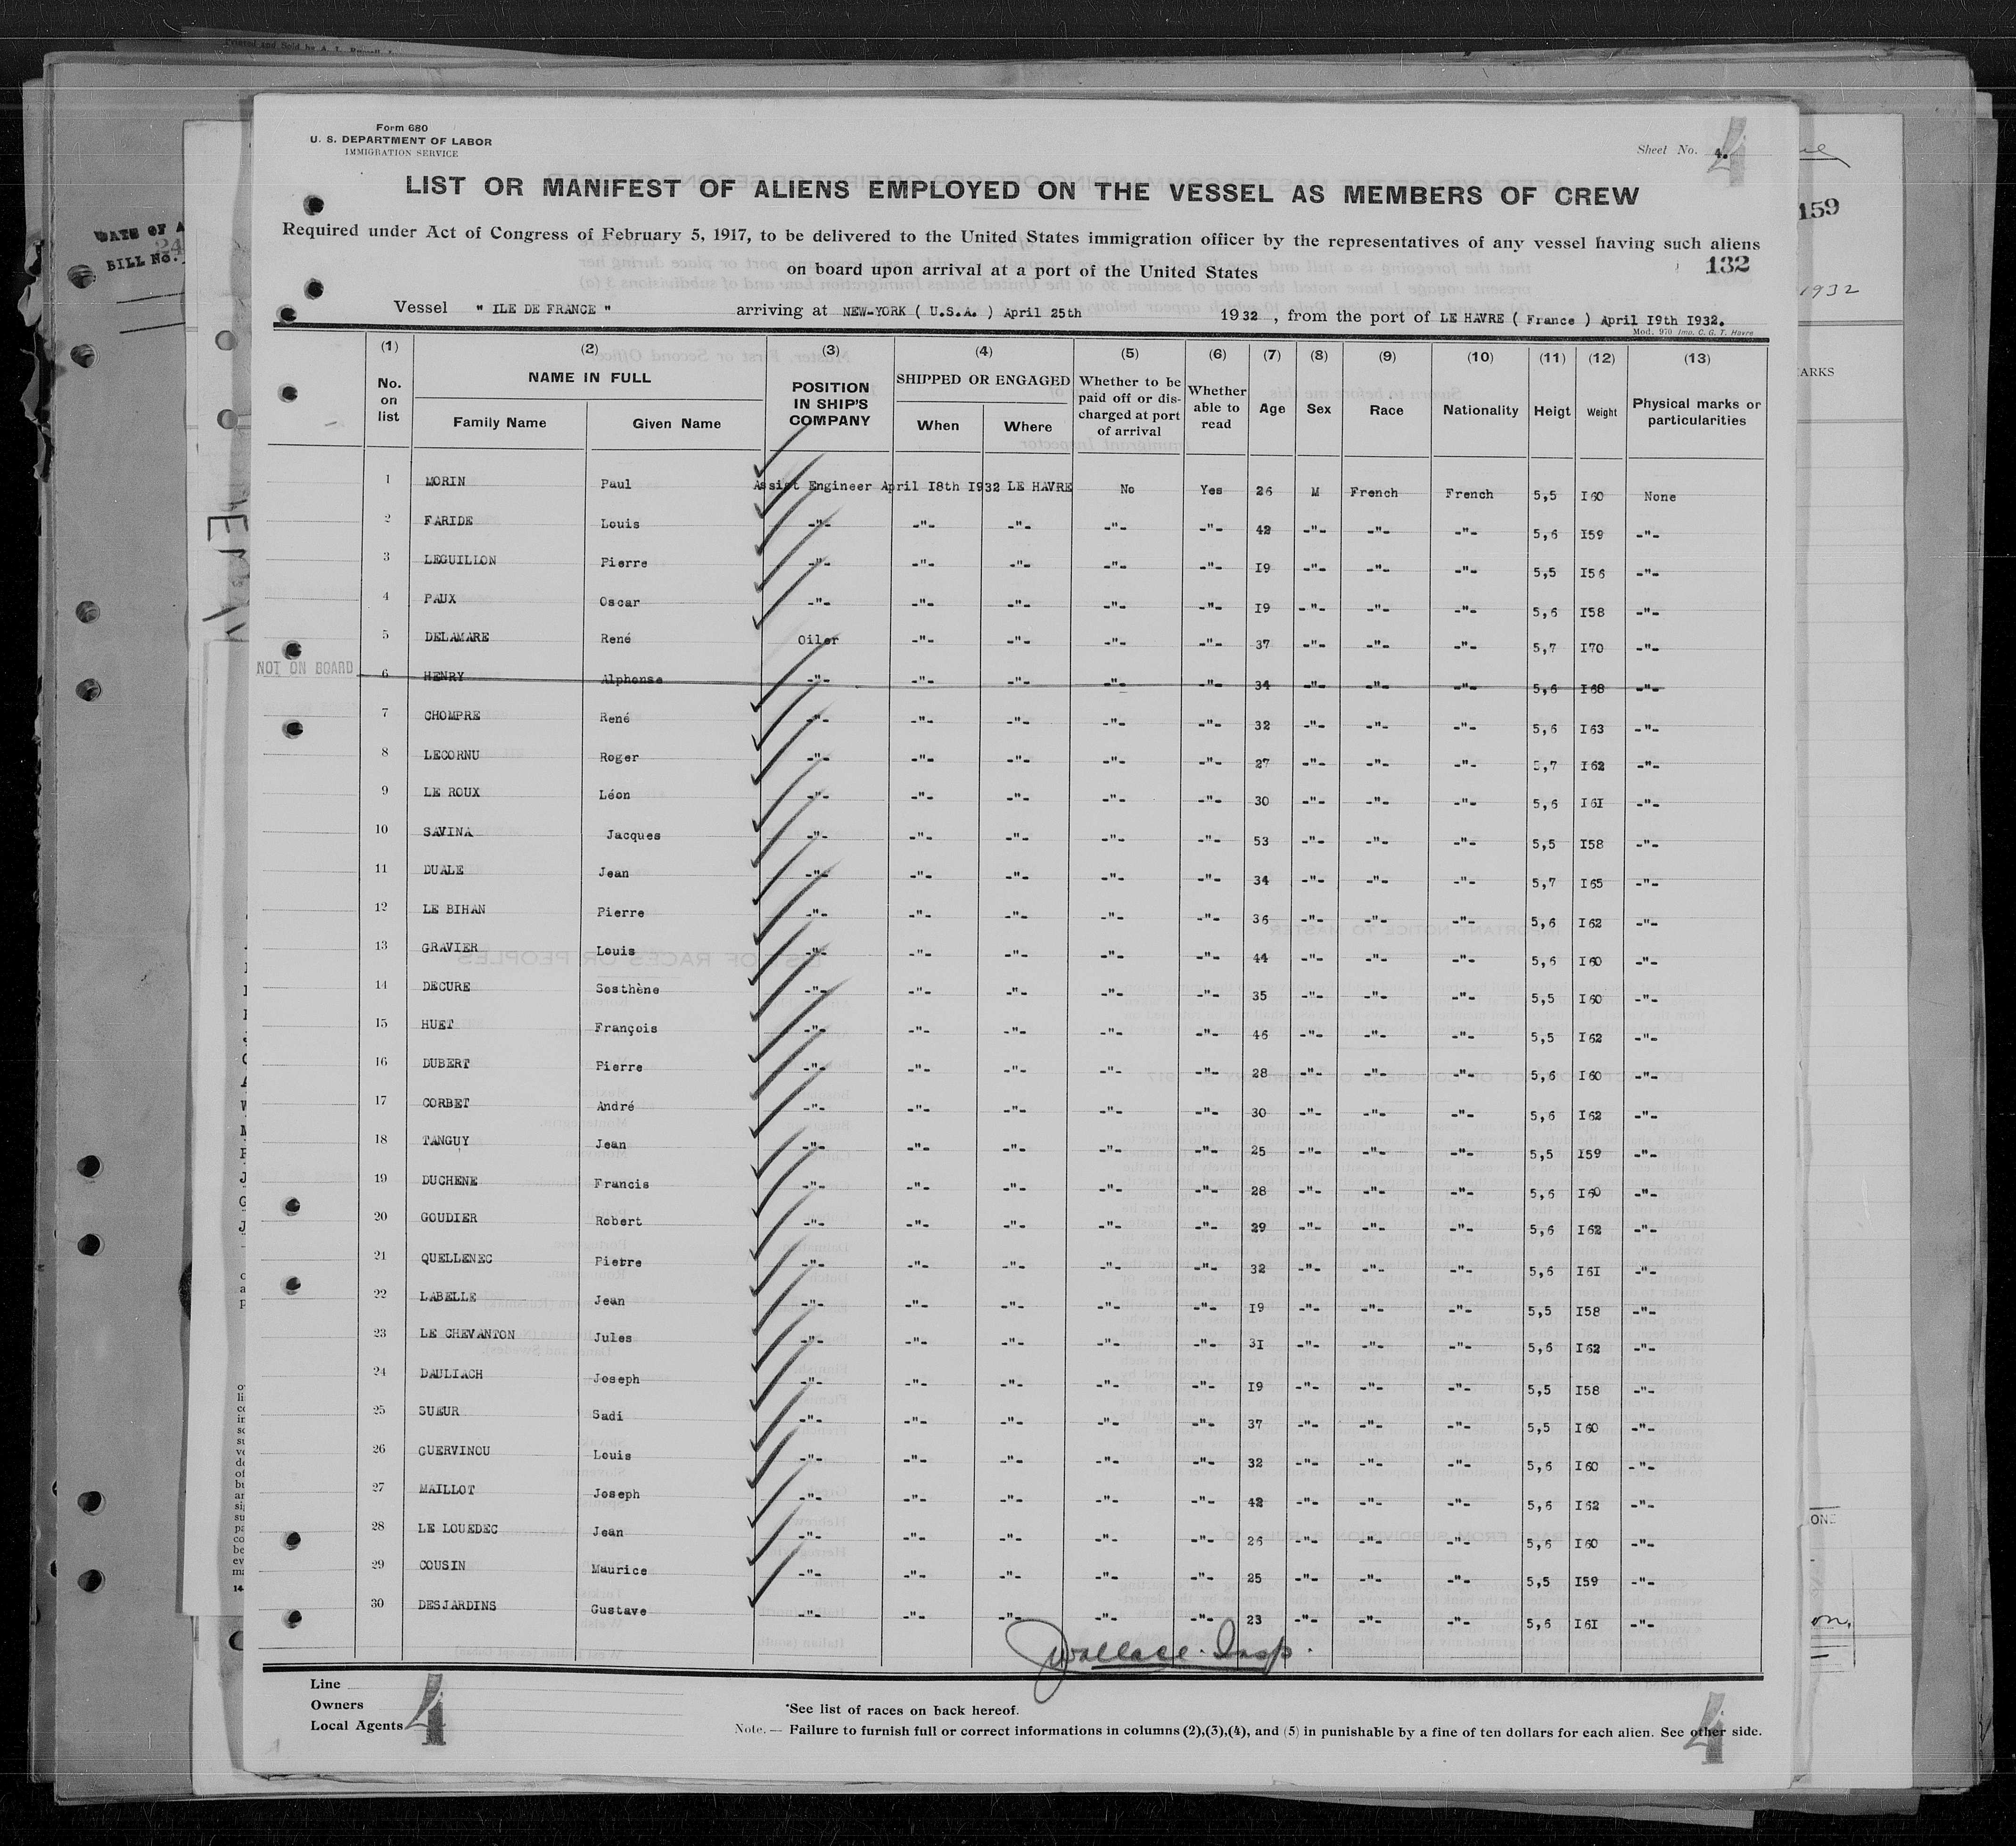 Form 680
U. S. DEPARTMENT OF LABOR
IMMIGRATION SERVICE
Sheet No. 4.
4
LIST OR MANIFEST OF ALIENS EMPLOYED ON THE VESSEL AS MEMBERS OF CREW
Required under Act of Congress of February 5, 1917, to be delivered to the United States immigration officer by the representatives of any vessel having such aliens
on board upon arrival at a port of the United States
132
159
1932
BILL No.
Vessel " ILE DE FRANCE " arriving at NEW-YORK ( U.S.A. ) April 25th 1932, from the port of LE HAVRE ( France ) April I9th I932.
Mod. 970 Imp. C. G. T. Havre
(1) (2) (3) (4) (5) (6) (7) (8) (9) (10) (11) (12) (13)
No. on list NAME IN FULL Family Name Given Name POSITION IN SHIP'S COMPANY SHIPPED OR ENGAGED When Where Whether to be paid off or discharged at port of arrival Whether able to read Age Sex Race Nationality Heigt Weight Physical marks or particularities
1 MORIN Paul Assist Engineer April I8th I932 LE HAVRE No Yes 26 M French French 5,5 I60 None
2 FARIDE Louis -"- -"- -"- -"- -"- 42 -"- -"- -"- 5,6 I59 -"-
3 LEGUILLON Pierre -"- -"- -"- -"- -"- I9 -"- -"- -"- 5,5 I56 -"-
4 PAUX Oscar -"- -"- -"- -"- -"- I9 -"- -"- -"- 5,6 I58 -"-
5 DELAMARE René Oiler -"- -"- -"- -"- 37 -"- -"- -"- 5,7 I70 -"-
NOT ON BOARD 6 HENRY Alphonse -"- -"- -"- -"- -"- 34 -"- -"- -"- 5,6 I68 -"-
7 CHOMPRE René -"- -"- -"- -"- -"- 32 -"- -"- -"- 5,6 I63 -"-
8 LECORNU Roger -"- -"- -"- -"- -"- 27 -"- -"- -"- 5,7 I62 -"-
9 LE ROUX Léon -"- -"- -"- -"- -"- 30 -"- -"- -"- 5,6 I6I -"-
10 SAVINA Jacques -"- -"- -"- -"- -"- 53 -"- -"- -"- 5,5 I58 -"-
11 DUALE Jean -"- -"- -"- -"- -"- 34 -"- -"- -"- 5,7 I65 -"-
12 LE BIHAN Pierre -"- -"- -"- -"- -"- 36 -"- -"- -"- 5,6 I62 -"-
13 GRAVIER Louis -"- -"- -"- -"- -"- 44 -"- -"- -"- 5,6 I60 -"-
14 DECURE Sosthène -"- -"- -"- -"- -"- 35 -"- -"- -"- 5,5 I60 -"-
15 HUET François -"- -"- -"- -"- -"- 46 -"- -"- -"- 5,5 I62 -"-
16 DUBERT Pierre -"- -"- -"- -"- -"- 28 -"- -"- -"- 5,6 I60 -"-
17 CORBET André -"- -"- -"- -"- -"- 30 -"- -"- -"- 5,6 I62 -"-
18 TANGUY Jean -"- -"- -"- -"- -"- 25 -"- -"- -"- 5,5 I59 -"-
19 DUCHENE Francis -"- -"- -"- -"- -"- 28 -"- -"- -"- 5,6 I60 -"-
20 GOUDIER Robert -"- -"- -"- -"- -"- 29 -"- -"- -"- 5,6 I62 -"-
21 QUELLENEC Pierre -"- -"- -"- -"- -"- 32 -"- -"- -"- 5,6 I6I -"-
22 LABELLE Jean -"- -"- -"- -"- -"- I9 -"- -"- -"- 5,5 I58 -"-
23 LE CHEVANTON Jules -"- -"- -"- -"- -"- 3I -"- -"- -"- 5,6 I62 -"-
24 DAULIACH Joseph -"- -"- -"- -"- -"- I9 -"- -"- -"- 5,5 I58 -"-
25 SUEUR Sadi -"- -"- -"- -"- -"- 37 -"- -"- -"- 5,5 I60 -"-
26 GUERVINOU Louis -"- -"- -"- -"- -"- 32 -"- -"- -"- 5,6 I60 -"-
27 MAILLOT Joseph -"- -"- -"- -"- -"- 42 -"- -"- -"- 5,6 I62 -"-
28 LE LOUEDEC Jean -"- -"- -"- -"- -"- 26 -"- -"- -"- 5,6 I60 -"-
29 COUSIN Maurice -"- -"- -"- -"- -"- 25 -"- -"- -"- 5,5 I59 -"-
30 DESJARDINS Gustave -"- -"- -"- -"- -"- 23 -"- -"- -"- 5,6 I6I -"-
Wallace. Insp.
Line
Owners
Local Agents
4
*See list of races on back hereof.
Note. — Failure to furnish full or correct informations in columns (2),(3),(4), and (5) in punishable by a fine of ten dollars for each alien. See other side.
4